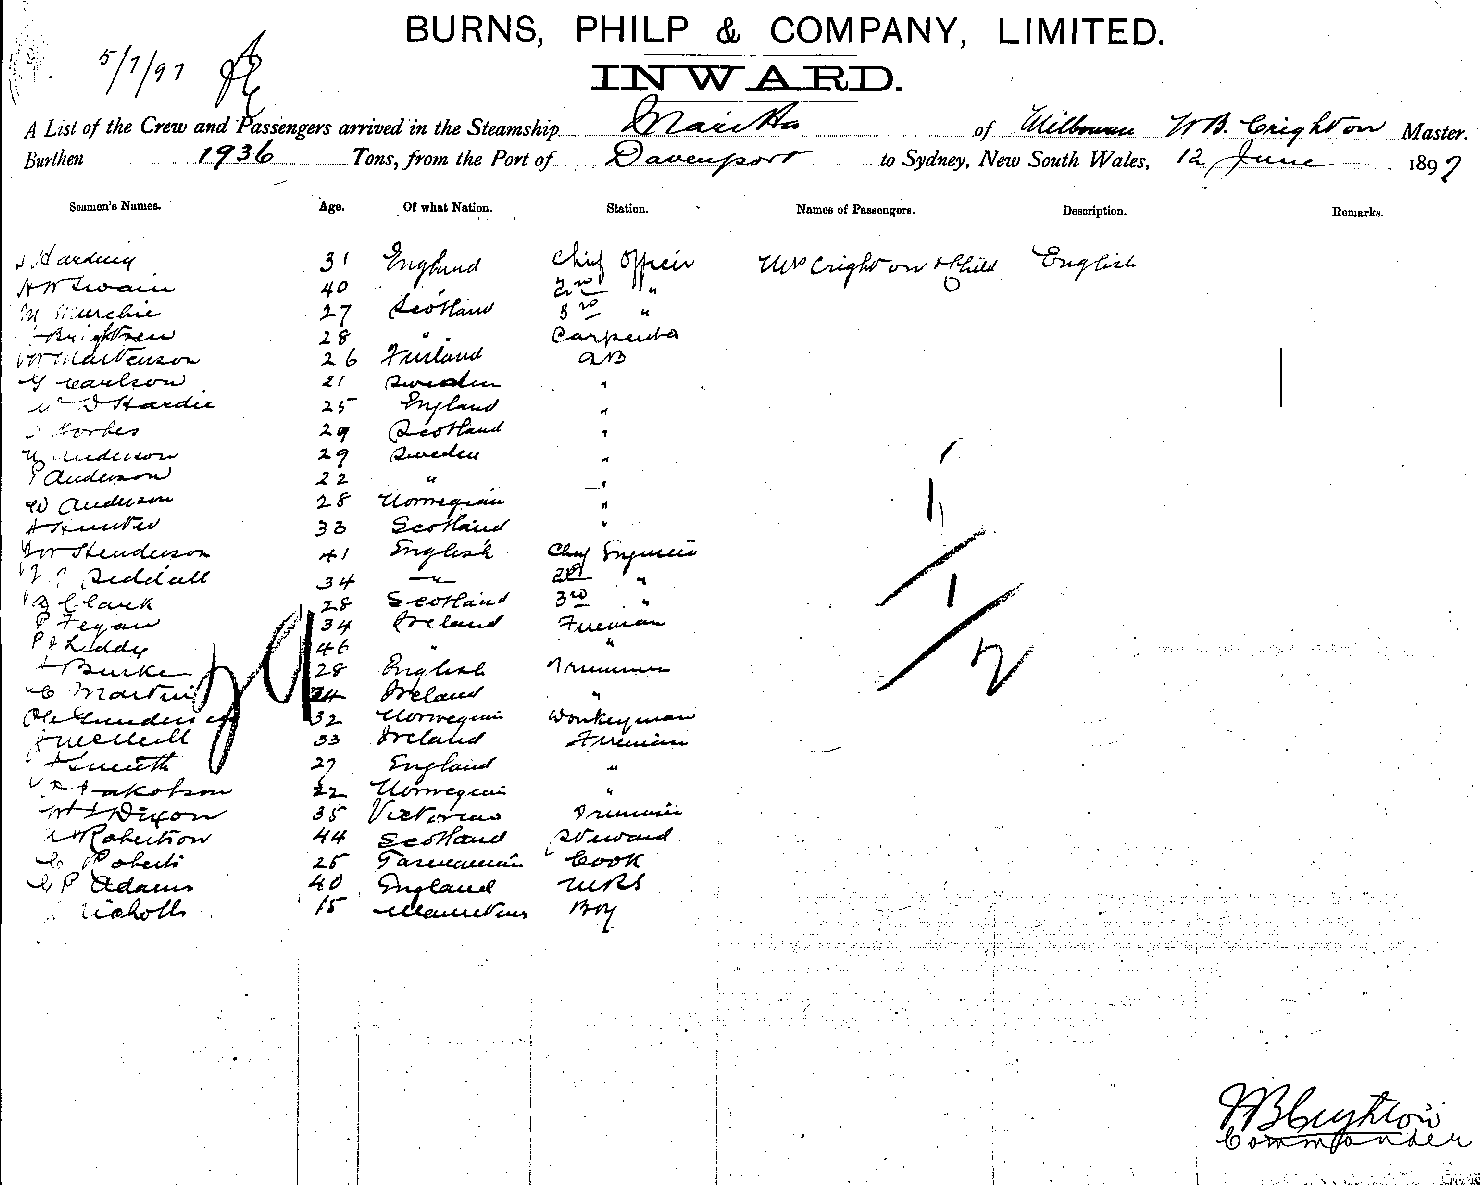 BURNS, PHILP & COMPANY, LIMITED.
5/7/97
INWARD.
A List of the Crew and Passengers arrived in the Steamship of Melbourne W B. Crighton Master.
Burthen 1936 Tons, from the Port of Davenport to Sydney, New South Wales, 12 June 1897
Seamen's Names. Age. Of what Nation. Station. Names of Passengers. Description. Remarks.
Harding 31 England Chief Officer Mrs Crighton & Child English
H W Swain 40 " 2nd "
M Murchie 27 Scotland 3rd "
28 " Carpenter
Martenson 26 AB
G Carlson 21 Sweden "
W D Hardie 25 England "
Forbes 29 Scotland "
Anderson 29 Sweden "
P Anderson 22 " "
W Anderson 28 Norwegian "
A Hunter 33 Scotland "
J W Henderson 41 English Chief Engineer
Siddall 34 " 2nd "
Clark 28 Scotland 3rd "
P Fegan 34 Ireland Fireman
P J Liddy 46 " "
Burke 28 English Trimmer
C Martin 24 Ireland "
32 Norwegian Donkeyman
McNeill 33 Ireland Fireman
Smith 27 England "
Jakobson 22 Norwegian "
Dixon 35 Victorian Trimmer
Robertson 44 Scotland Steward
C Roberts 25 Tasmanian Cook
C P Adams 40 England MRS
Nicholls 15 Mauritius Boy
29
1
1
12
W B Crighton
Commander